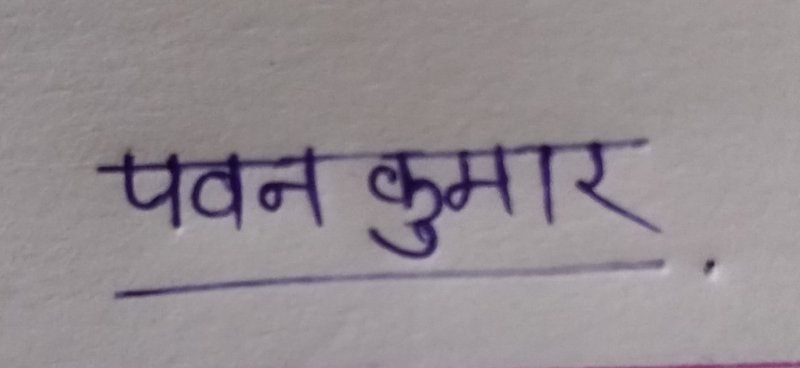 पवन कुमार.